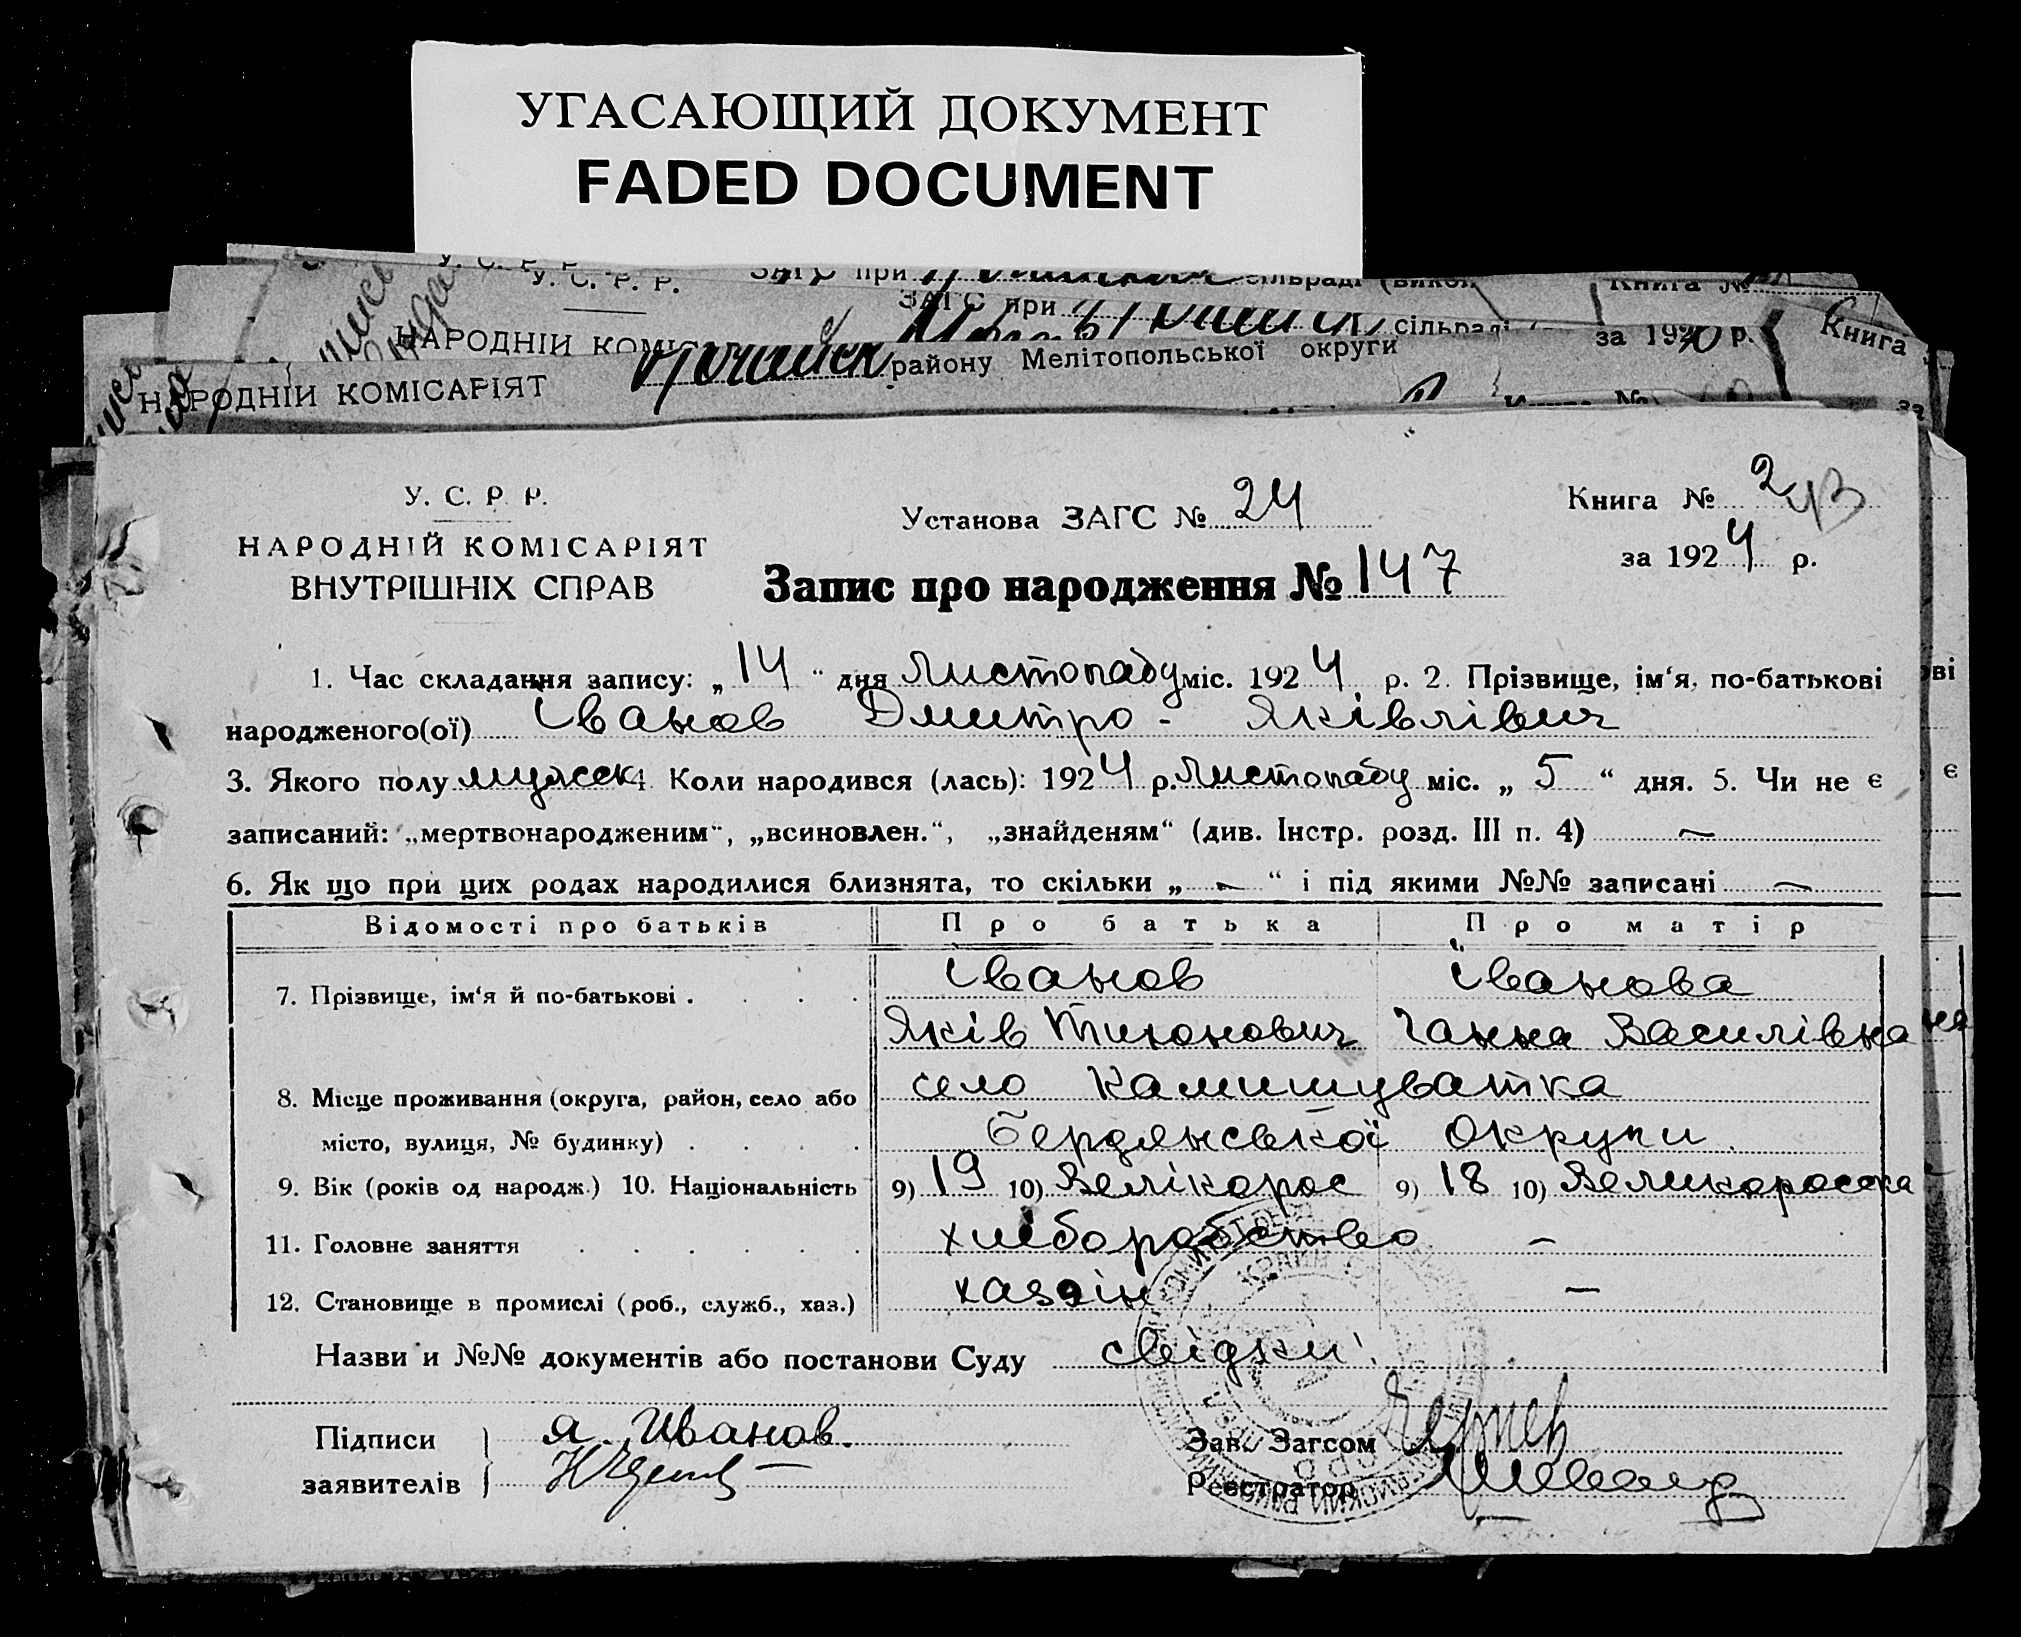 УГАСАЮЩИЙ ДОКУМЕНТ
FADED DOCUMENT
У. С. Р. Р. ЗАГС при сільраді
У. С. Р. Р. ЗАГС при сільраді Книга №
НАРОДНІЙ за 1930 р. Книга
району Мелітопольської округи
НАРОДНІЙ КОМІСАРІЯТ за
У. С. Р. Р.
НАРОДНІЙ КОМІСАРІЯТ
ВНУТРІШНІХ СПРАВ
Установа ЗАГС № 24
Книга № 2
за 1924 р.
Запис про народження № 147
1. Час складання запису: „ 14 “ дня Листопаду міс. 1924 р. 2. Прізвище, ім‘я, по-батькові
народженого(ої) Іванов Дмитро - Яківлівич
3. Якого полу мужск 4. Коли народився (лась): 1924 р. Листопаду міс. „ 5 “ дня. 5. Чи не є
записаний: „мертвонародженим“, „всиновлен.“, „знайденям“ (див. Інстр. розд. III п. 4) —
6. Як що при цих родах народилися близнята, то скільки „ — “ і під якими №№ записані —
Відомості про батьків Про батька Про матір
7. Прізвище, ім‘я й по-батькові . . . . Іванов Іванова
Яків Тихонович Ганна Василівна
8. Місце проживання (округа, район, село або село Камишуватка
місто, вулиця, № будинку) . . . . Бердянської Округи.
9. Вік (років од народж.) 10. Національність 9) 19 10) Велікорос 9) 18 10) Великороска
11. Головне заняття . . . . . . хліборобство —
12. Становище в промислі (роб., служб., хаз.) хазяін —
Назви и №№ документів або постанови Суду свідки
Підписи Я. Иванов.
заявителів
Зав. Загсом
Реєстратор